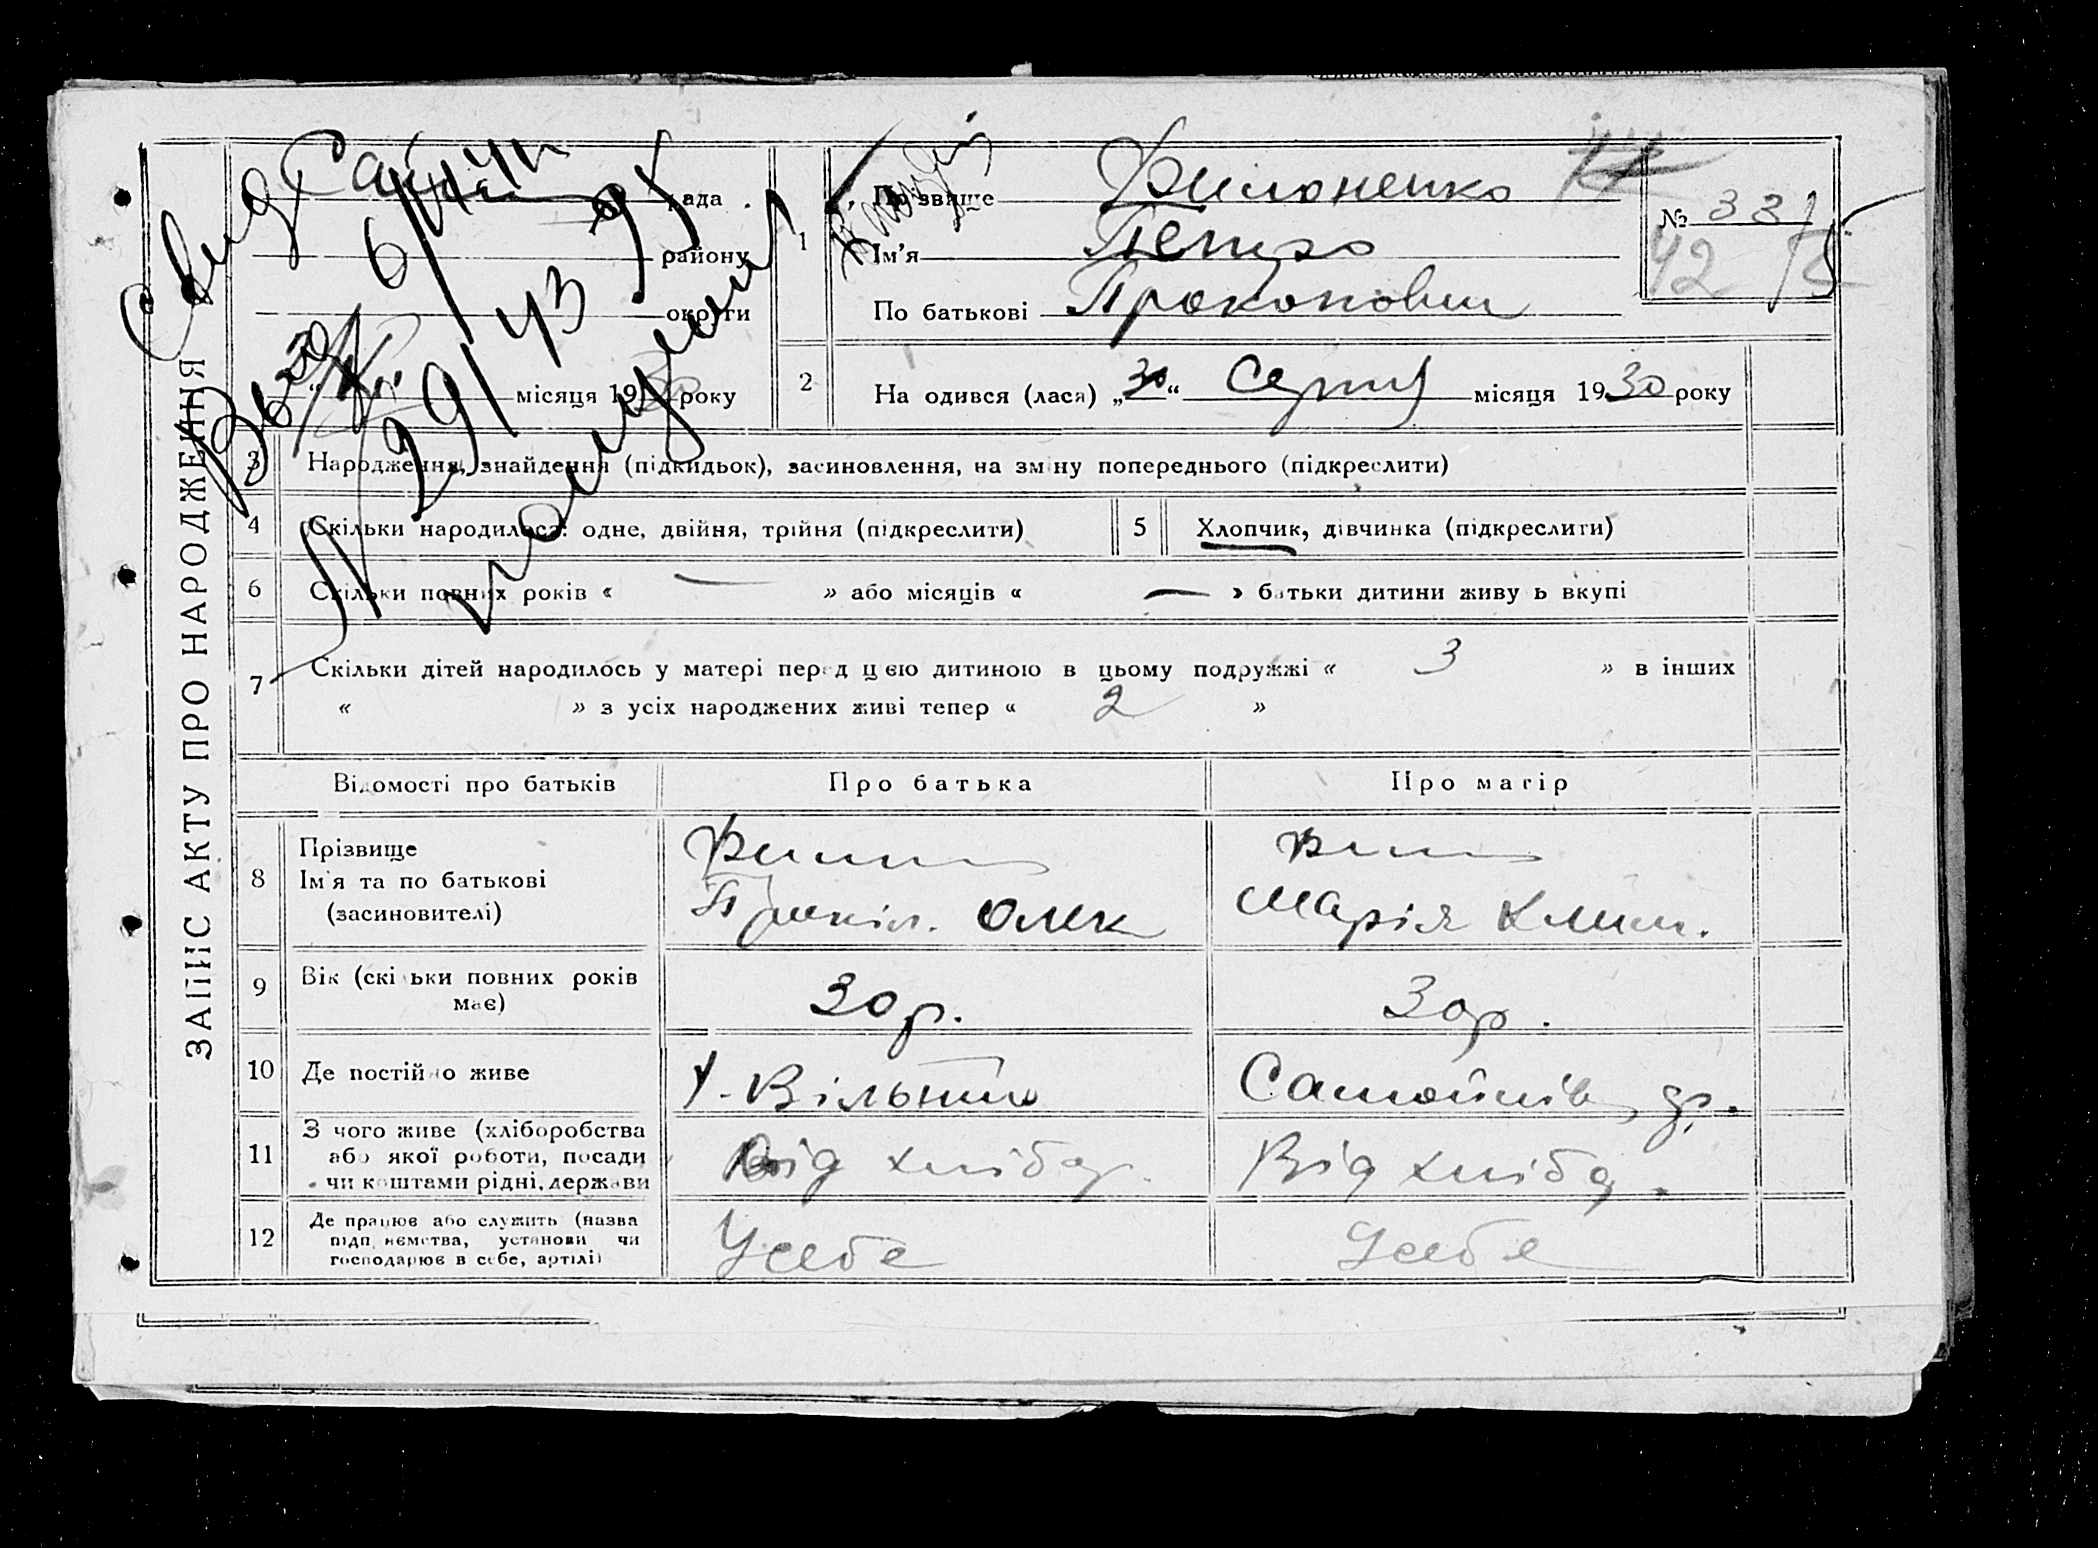 ЗАПИС АКТУ ПРО НАРОДЖЕННЯ
рада
району
округи
місяця 19 30 року
1
Прізвище Филоненко
Ім'я Петро
По батькові Прокопович
№ 331
42
2
На одився (лася) „30“ Серпня місяця 1930 року
3 Народження, знайдення (підкидьок), засиновлення, на зміну попереднього (підкреслити)
4 Скільки народилося: одне, двійня, трійня (підкреслити)
5 Хлопчик, дівчинка (підкреслити)
6 Скільки повних років « — » або місяців « — » батьки дитини живу ь вкупі
7 Скільки дітей народилось у матері перед цією дитиною в цьому подружжі « 3 » в інших
« » з усіх народжених живі тепер « 2 »
Відомості про батьків
Про батька
Про матір
8 Прізвище
Ім'я та по батькові
(засиновителі)
Прокіп. Олек
Марія Клим.
9 Вік (скільки повних років має)
30 р.
30 р.
10 Де постійно живе
х. Вільний
11 З чого живе (хліборобства
або якої роботи, посади
чи коштами рідні, держави
Від хлібор.
Від хліб
12 Де працює або служить (назва
підприємства, установи чи
господарює в себе, артілі)
У себе
У себе